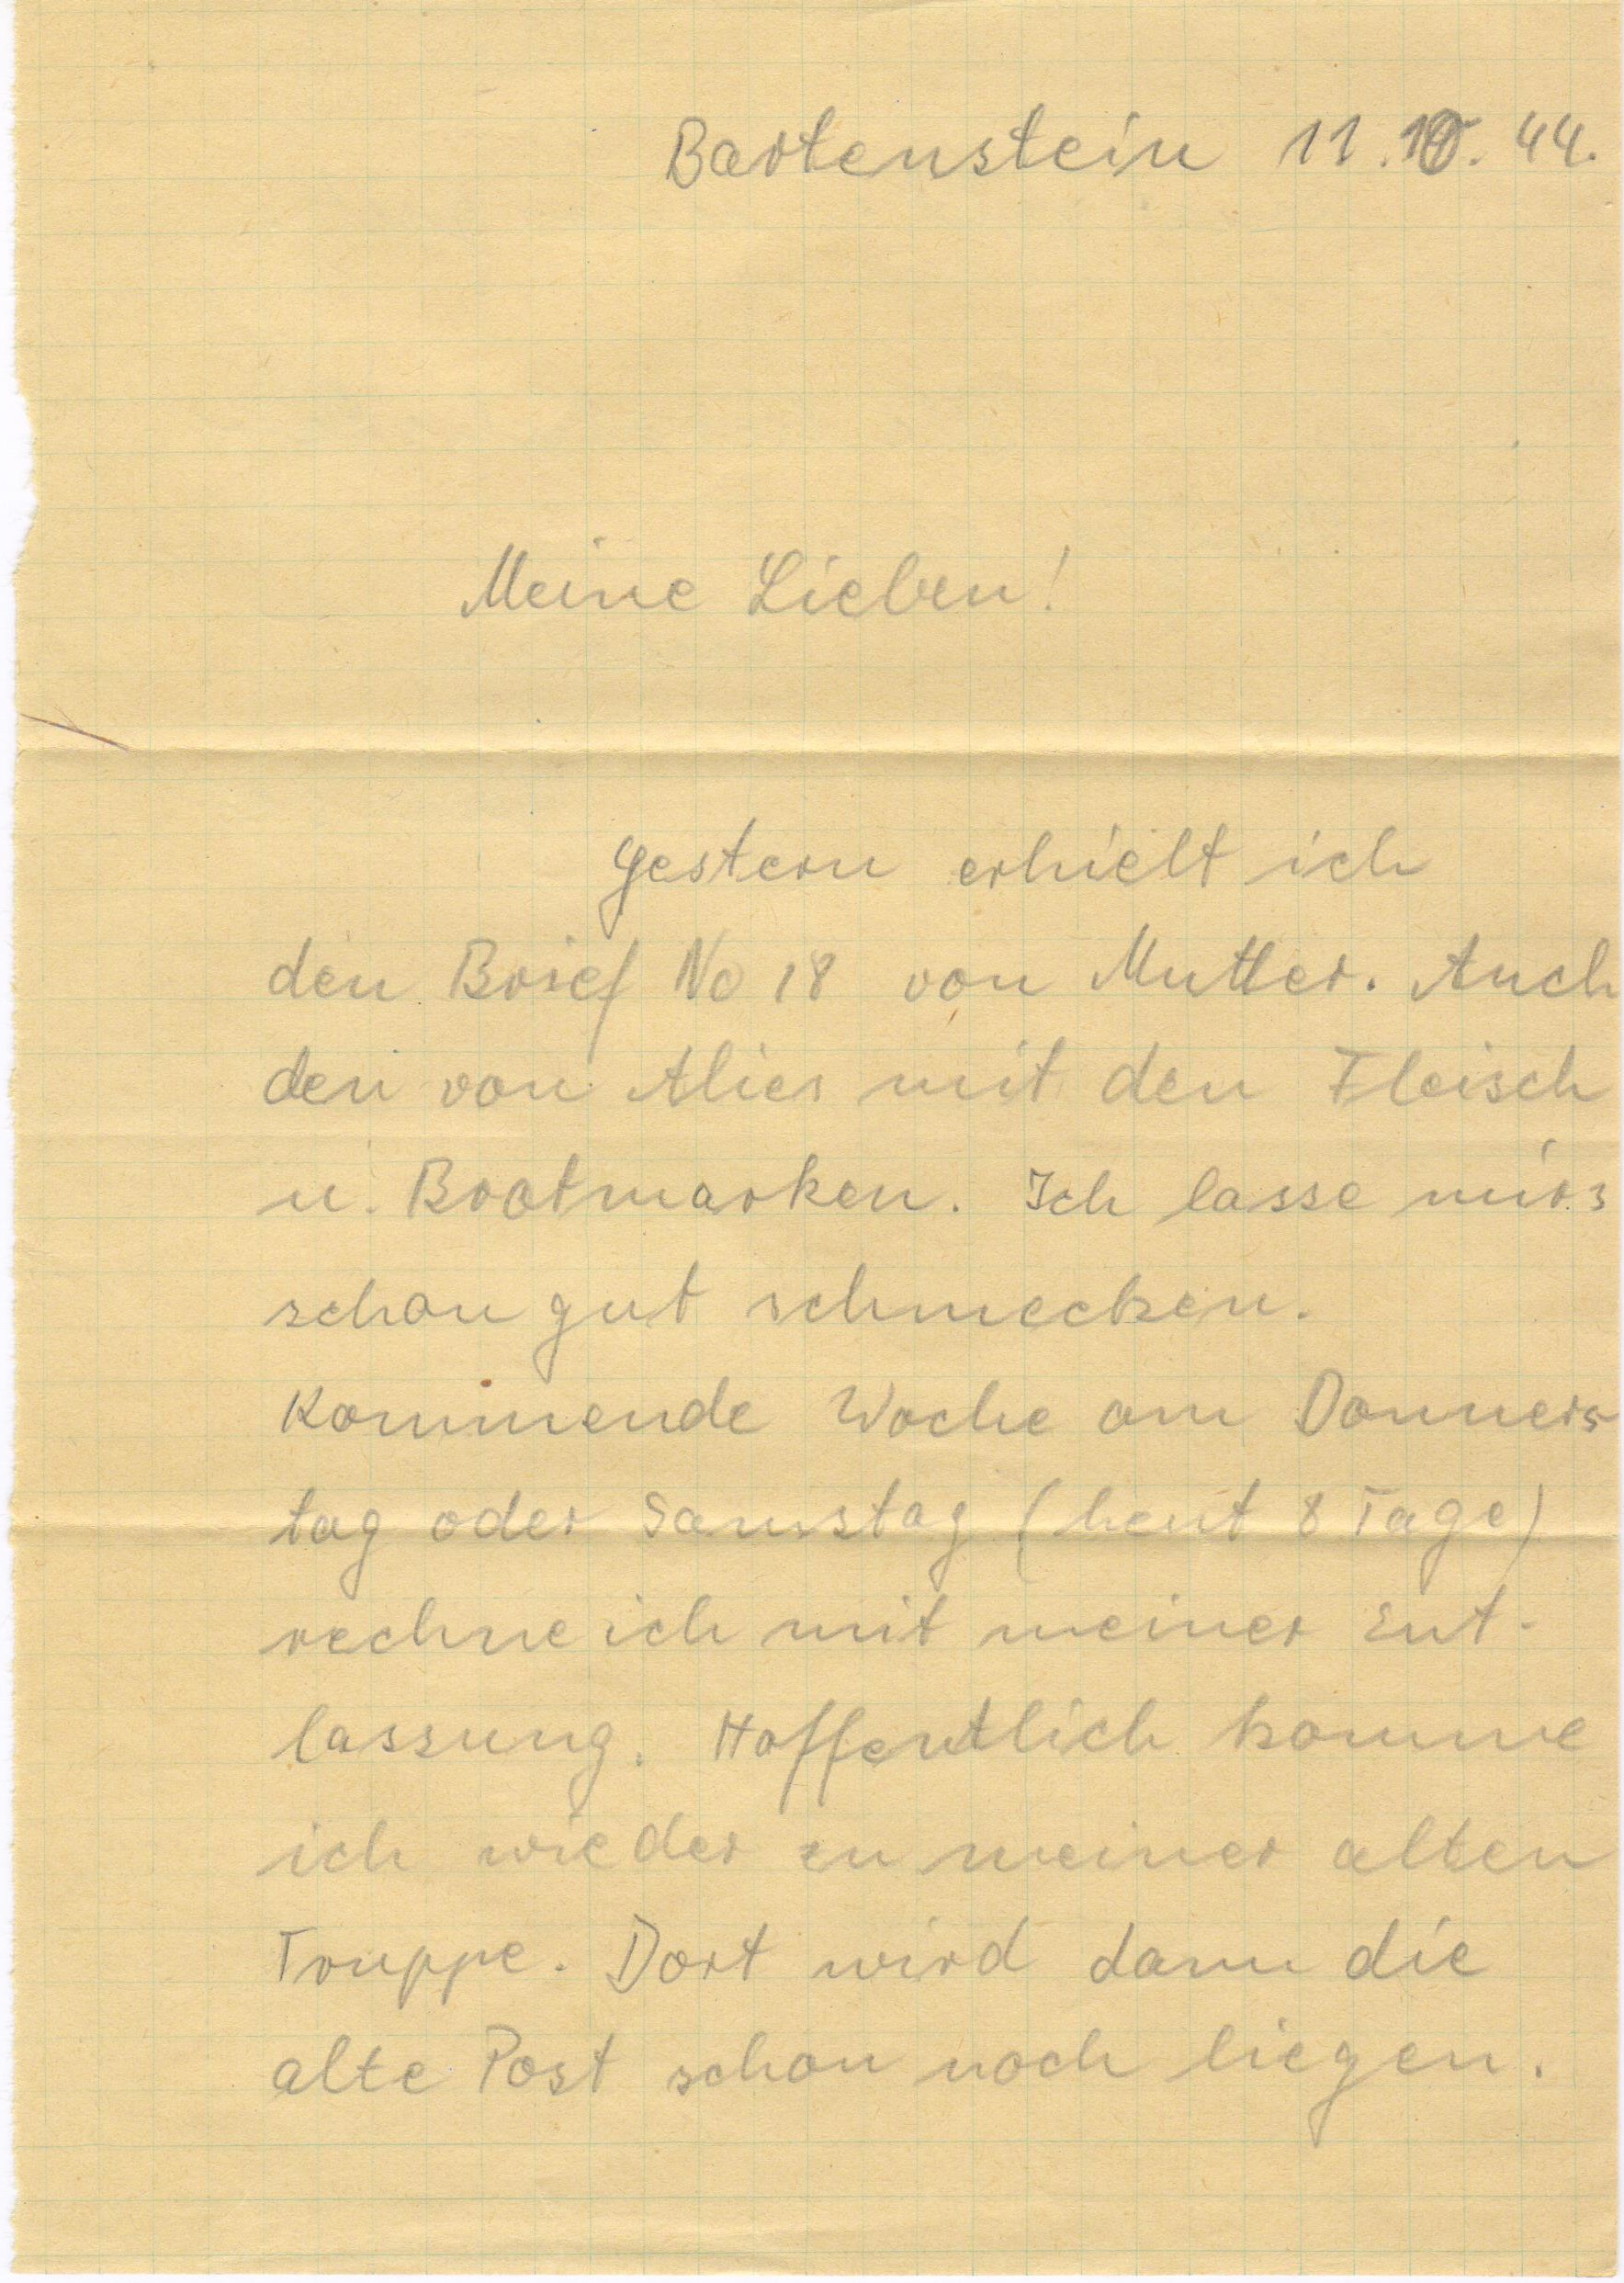 Bartenstein 11.10.44.
Meine Lieben!
Gestern erhielt ich
den Brief No 18 von Mutter. Auch
den von Alies mit den Fleisch
u. Brotmarken. Ich lasse mirs
schon gut schmecken.
Kommende Woche am Donners
tag oder Samstag (heut 8 Tage)
rechne ich mit meiner Ent-
lassung. Hoffentlich komme
ich wieder zu meiner alten
Truppe. Dort wird dann die
alte Post schon noch liegen.